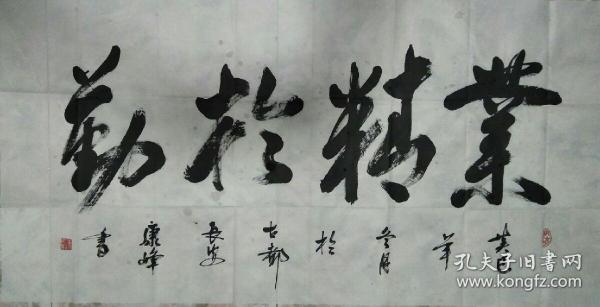 業精於勤
癸巳年冬月於古都長安康峰書
孔夫子旧书网
www.kongfz.com